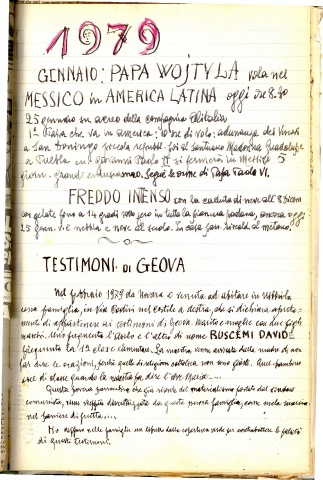 1979
GENNAIO: PAPA WOJTYLA vola nel
MESSICO in AMERICA LATINA oggi ore 8.20
25 gennaio su aereo della compagnia Alitalia
1° Papa che va in america: 10 ore di volo: adunanza dei Vescovi
a San Domingo piccola repubbl. poi al santuario Madonna Guadalupe
a Puebla Giovanni Paolo II si fermerà in Messico 5
giorni. grand entusiasmo. Segue le orme di Papa Paolo VI.
FREDDO INTENSO con la caduta di neve all' 8 Dicem
con gelate fino a 14 gradi sotto zero in tutta la pianura padana, ancora oggi
25 genn. c'è nebbia e neve al suolo. In casa riscald. al metano.
TESTIMONI DI GEOVA
Nel febbraio 1979 da Novara è venuta ad abitare in
una famiglia, in Via Cortini nel cortile a destra, che si dichiara
di appartenere ai testimoni di Geova. Marito e moglie con due figli
maschi. Uno frequenta l'asilo e l'altro di nome RUSCEMI DAVIDE
frequenta la 1ª classe elementare. La maestra venne avvisata dalla madre di non
far dire le orazioni, perché quelle di religione cattolica non sono giuste. Quel bambino
esce di classe quando la maestra fa dire l'Ave Maria....
Questa zona che già risente del materialismo portato dal sindaco
comunista, viene da questa nuova famiglia, come mela marcia
nel paniere di frutta....
Ho nelle famiglie un
di questi testimoni.